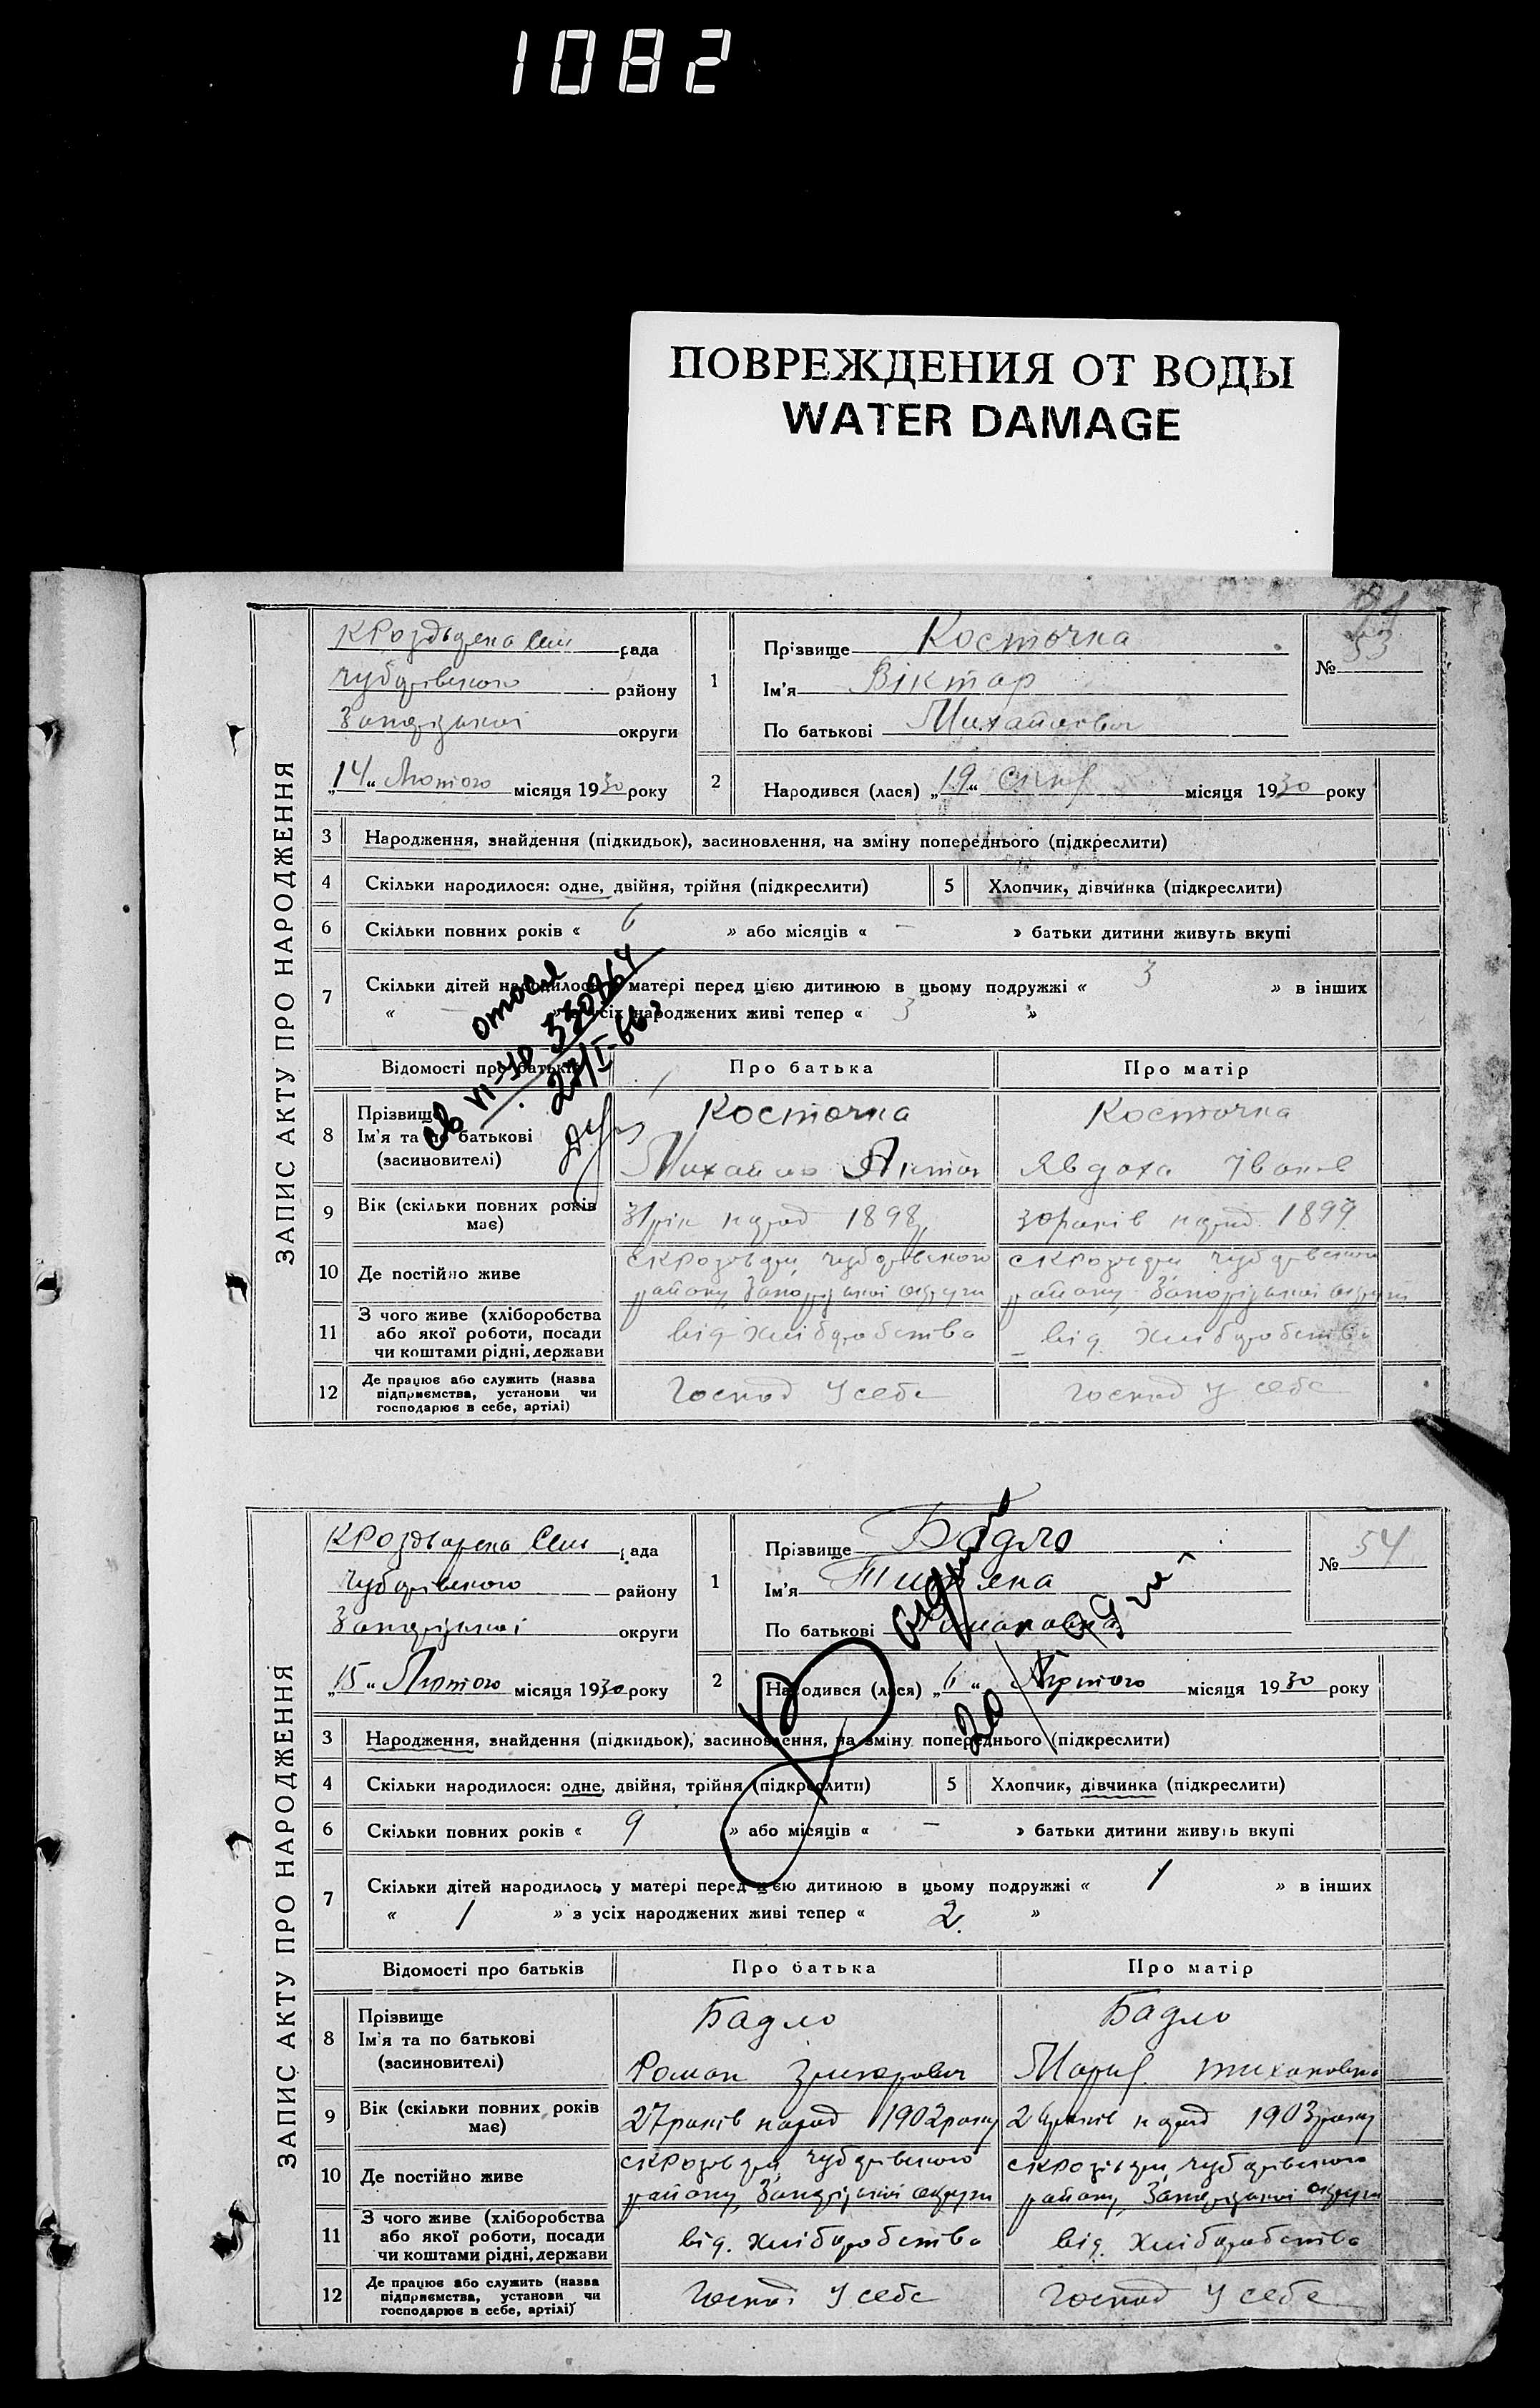 1082
ПОВРЕЖДЕНИЯ ОТ ВОДЫ
WATER DAMAGE
ЗАПИС АКТУ ПРО НАРОДЖЕННЯ
рада
району
округи
„14“ Лютого місяця 1930 року
1
Прізвище Косточка
Ім'я Віктор
По батькові Михайлович
№ 53
2
Народився (лася) „19“ січня місяця 1930 року
3 Народження, знайдення (підкидьок), засиновлення, на зміну попереднього (підкреслити)
4 Скільки народилося: одне, двійня, трійня (підкреслити)
5 Хлопчик, дівчинка (підкреслити)
6 Скільки повних років « 6 » або місяців « – » батьки дитини живуть вкупі
7 Скільки дітей народилось у матері перед цією дитиною в цьому подружжі « 3 » в інших
« – » з усіх народжених живі тепер « 3 »
Відомості про батьків
Про батька
Про матір
8 Прізвище
Ім'я та по батькові
(засиновителі)
Косточка
Михайло
Косточка
Явдоха Іванів
9 Вік (скільки повних років
має)
31 рік народ 1898 р.
30 років народ. 1899
10 Де постійно живе
району, Запорізької округи
району Запорізької округи
11 З чого живе (хліборобства
або якої роботи, посади
чи коштами рідні, держави
від хліборобства
від хліборобства
12 Де працює або служить (назва
підприємства, установи чи
господарює в себе, артілі)
Господ У себе
Господ У себе
ЗАПИС АКТУ ПРО НАРОДЖЕННЯ
рада
району
округи
„15“ Лютого місяця 1930 року
1
Прізвище Бадло
Ім'я Титяна
По батькові Романовна
№ 54
2
Народився (лася) „6“ Лютого місяця 1930 року
3 Народження, знайдення (підкидьок), засиновлення, на зміну попереднього (підкреслити)
4 Скільки народилося: одне, двійня, трійня (підкреслити)
5 Хлопчик, дівчинка (підкреслити)
6 Скільки повних років « 9 » або місяців « – » батьки дитини живуть вкупі
7 Скільки дітей народилось у матері перед цією дитиною в цьому подружжі « 1 » в інших
« 1 » з усіх народжених живі тепер « 2. »
Відомості про батьків
Про батька
Про матір
8 Прізвище
Ім'я та по батькові
(засиновителі)
Бадло
Роман Григорович
Бадло
Марія Тихоновна
9 Вік (скільки повних років
має)
27 років народ 1902 року
26 років народ 1903 року
10 Де постійно живе
району, Запорізької округи
району, Запорізької округи
11 З чого живе (хліборобства
або якої роботи, посади
чи коштами рідні, держави
від. хліборобства
від. хліборобства
12 Де працює або служить (назва
підприємства, установи чи
господарює в себе, артілі)
Господ У себе
Господ У себе